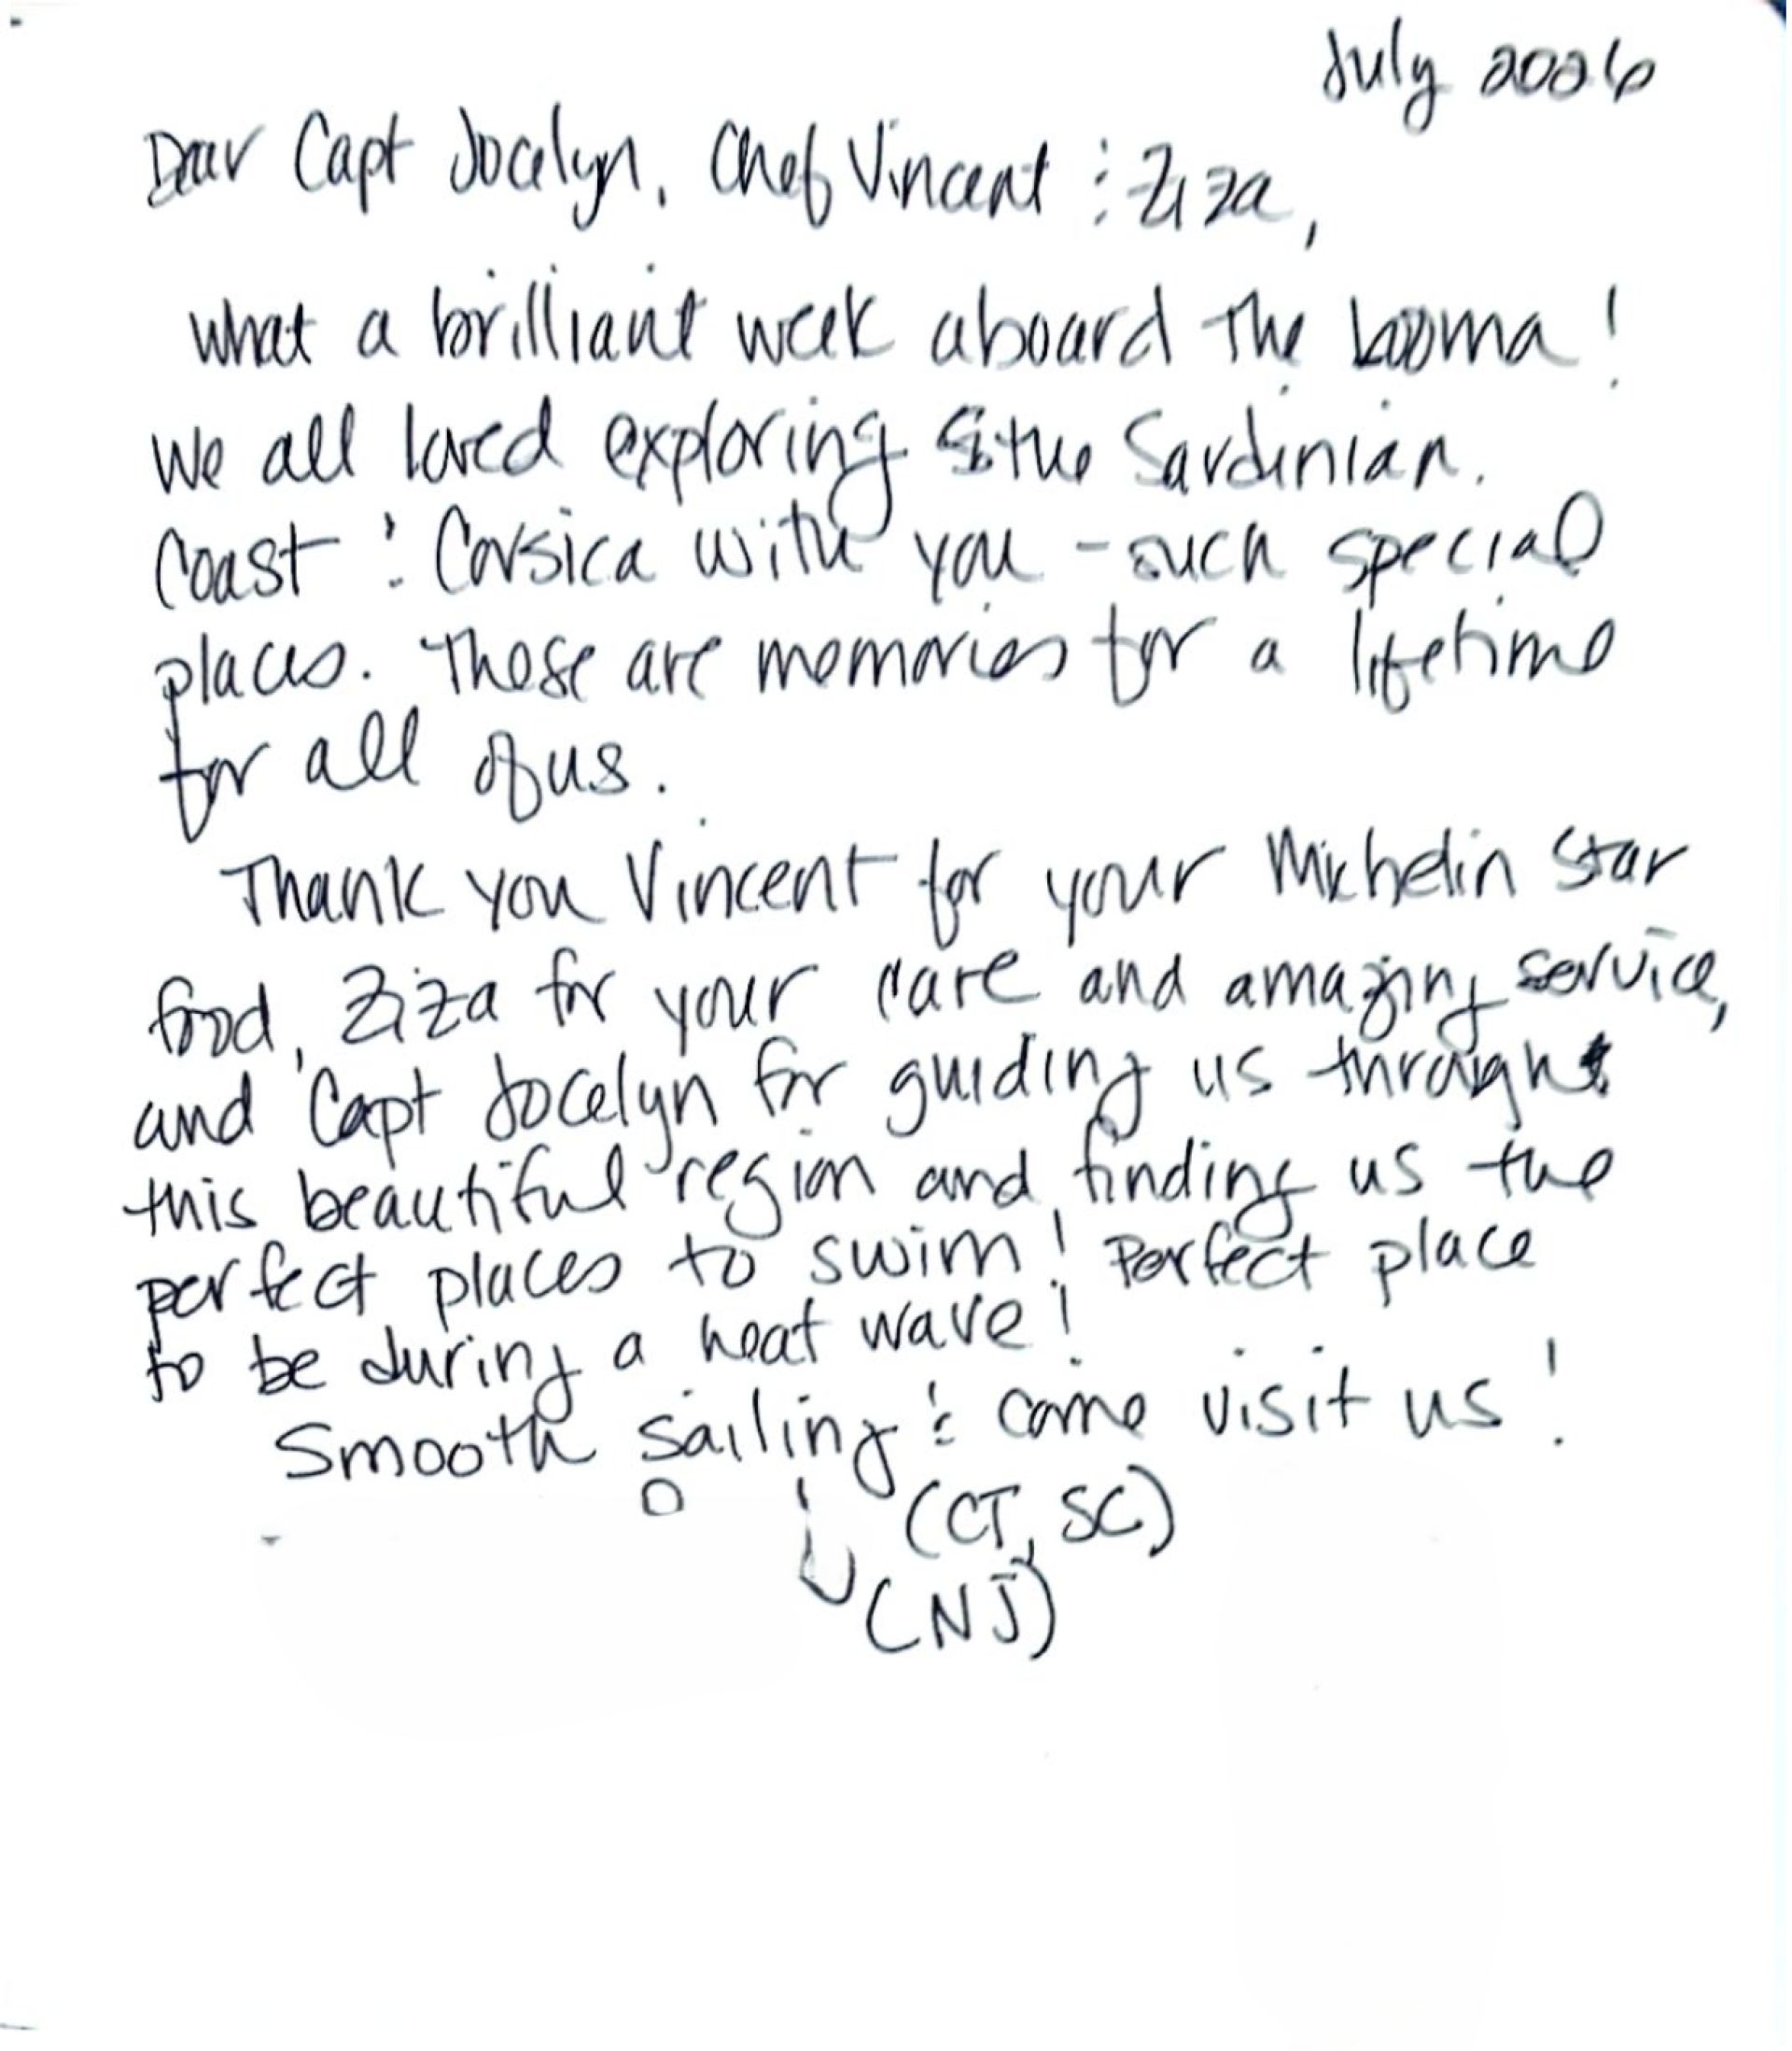 July 2026
Dear Capt Jocelyn, Chef Vincent & Ziza,
What a brilliant week aboard the Looma!
We all loved exploring the Sardinian
Coast & Corsica with you - such special
places. These are memories for a lifetime
for all of us.
Thank you Vincent for your Michelin Star
food, Ziza for your care and amazing service,
and Capt Jocelyn for guiding us through
this beautiful region and finding us the
perfect places to swim! Perfect place
to be during a heat wave!
Smooth sailing & come visit us!
(CT, SC)
(NJ)